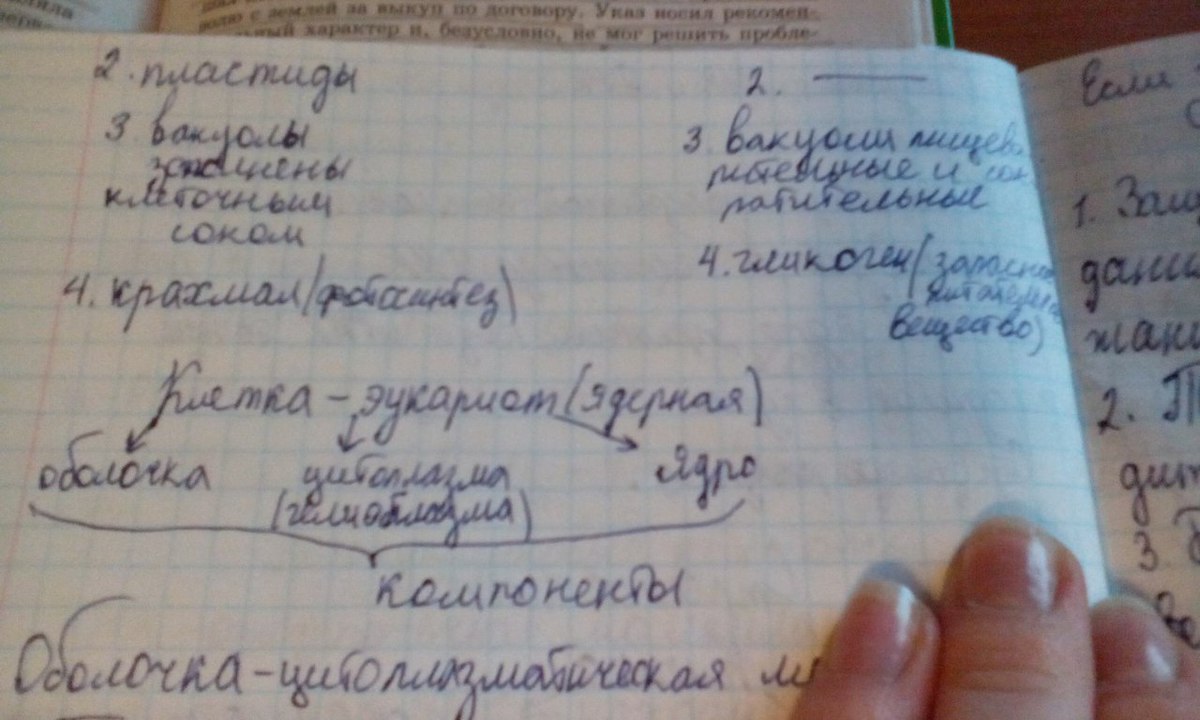 волю с землей за выкуп по договору. Указ носил рекомен-
характер и, безусловно, не мог решить пробле-
2. пластиды
3 вакуолы
заполнены
клеточным
соком
4. крахмал (фотосинтез)
2. ———
3. вакуоли пищев
рительные и сок
ратительные
4. гликоген (запасн
питательн
вещество)
Клетка – эукариот (ядерная)
оболочка цитоплазма ядро
компоненты
Оболочка - цитоплазматическая
Если
1. Защ
2. П
3.